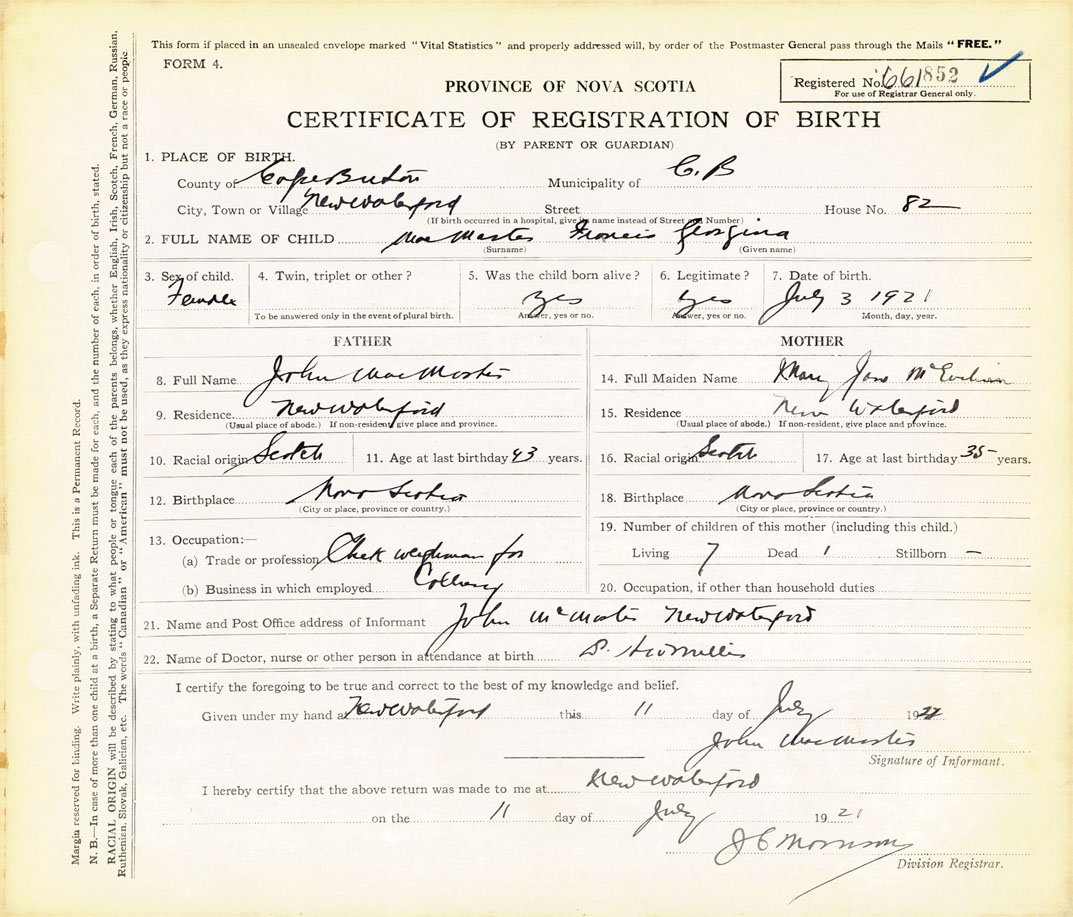 This form if placed in an unsealed envelope marked "Vital Statistics" and properly addressed will, by order of the Postmaster General pass through the Mails "FREE."
FORM 4.
Registered No. 661852
For use of Registrar General only.
PROVINCE OF NOVA SCOTIA
CERTIFICATE OF REGISTRATION OF BIRTH
(BY PARENT OR GUARDIAN)
1. PLACE OF BIRTH.
County of Cape Breton Municipality of C. B
City, Town or Village New Waterford Street House No. 82
(If birth occurred in a hospital, give its name instead of Street and Number)
2. FULL NAME OF CHILD MacMaster Francis Georgina
(Surname) (Given name)
3. Sex of child. 4. Twin, triplet or other? 5. Was the child born alive? 6. Legitimate? 7. Date of birth.
Female yes yes July 3 1921
To be answered only in the event of plural birth. Answer, yes or no. Answer, yes or no. Month, day, year.
FATHER
8. Full Name John MacMaster
9. Residence New Waterford
(Usual place of abode.) If non-resident, give place and province.
10. Racial origin Scotch 11. Age at last birthday 43 years.
12. Birthplace Nova Scotia
(City or place, province or country.)
13. Occupation:—
(a) Trade or profession Check weighman for
(b) Business in which employed Colliery
MOTHER
14. Full Maiden Name Mary Jane
15. Residence New Waterford
(Usual place of abode.) If non-resident, give place and province.
16. Racial origin Scotch 17. Age at last birthday 35 years.
18. Birthplace Nova Scotia
(City or place, province or country.)
19. Number of children of this mother (including this child.)
Living 7 Dead 1 Stillborn —
20. Occupation, if other than household duties
21. Name and Post Office address of Informant John McMaster New Waterford
22. Name of Doctor, nurse or other person in attendance at birth
I certify the foregoing to be true and correct to the best of my knowledge and belief.
Given under my hand at New Waterford this 11 day of July 19
John MacMaster
Signature of Informant.
I hereby certify that the above return was made to me at New Waterford
on the 11 day of July 19 21
J C Morrison
Division Registrar.
Margin reserved for binding. Write plainly, with unfading ink. This is a Permanent Record.
N. B.—In case of more than one child at a birth, a Separate Return must be made for each, and the number of each, in order of birth, stated.
RACIAL ORIGIN will be described by stating to what people or tongue each of the parents belongs, whether English, Irish, Scotch, French, German, Russian,
Ruthenian, Slovak, Galician, etc. The words "Canadian" or "American" must not be used, as they express nationality or citizenship but not a race or people.